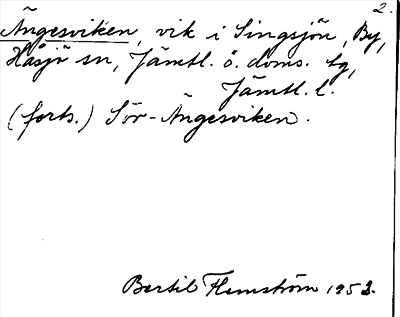 2.
Ängesviken, vik i Singsjön, By,
Håsjö sn, Jämtl. ö. doms. tg,
Jämtl. l.
(forts.) Sör-Ängesviken.
Bertil Flemström 1953.